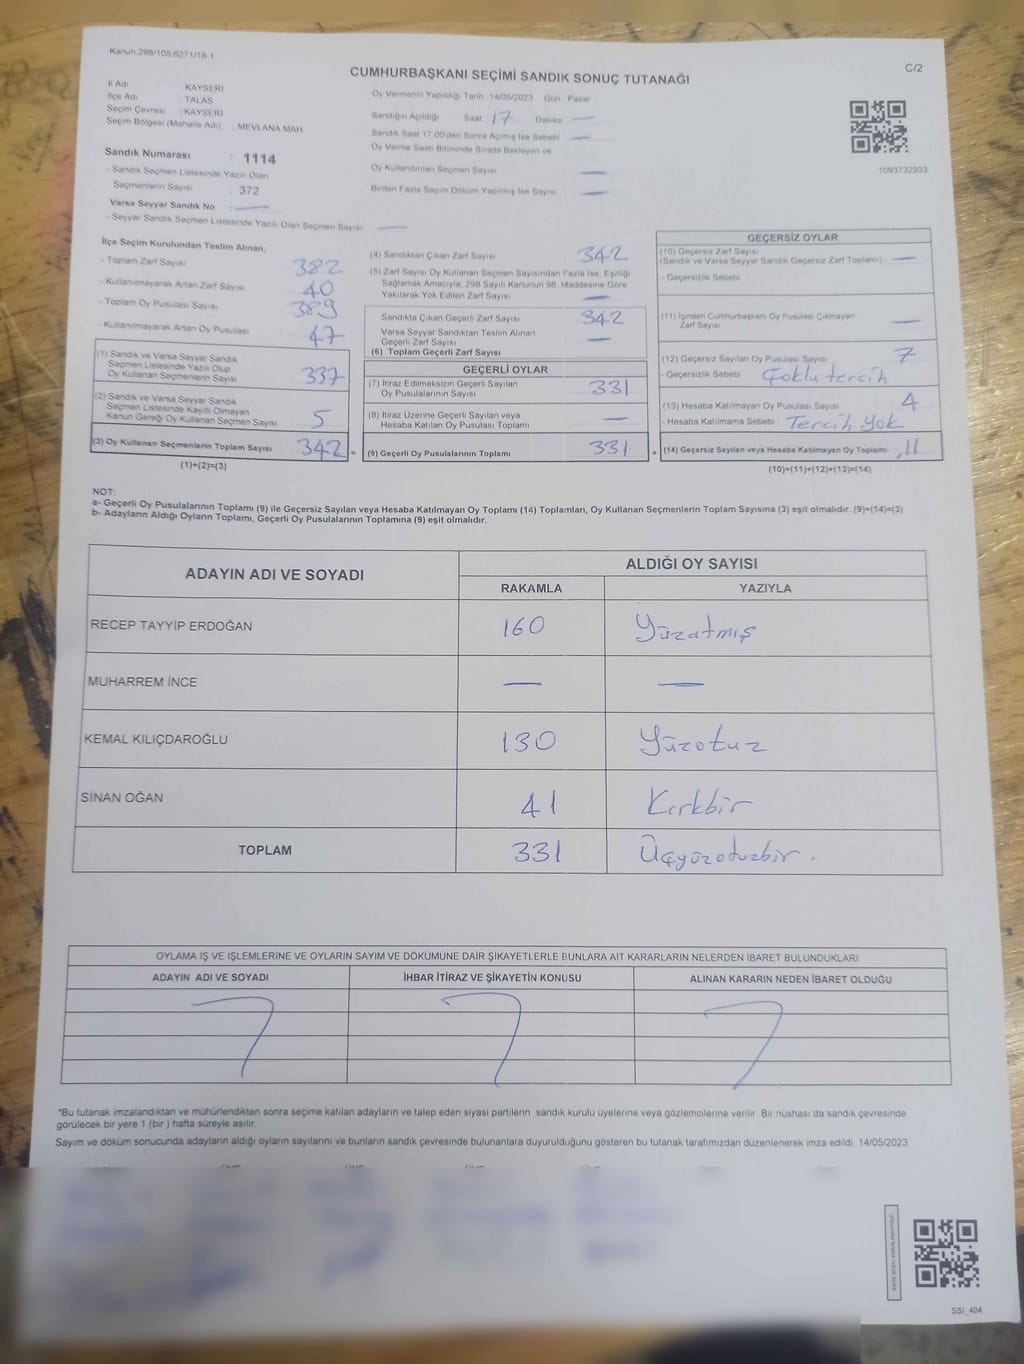 Kanun:298/105;6271/18-1
C/2
CUMHURBAŞKANI SEÇİMİ SANDIK SONUÇ TUTANAĞI
İl Adı KAYSERİ
İlçe Adı TALAS
Seçim Çevresi : KAYSERİ
Seçim Bölgesi (Mahalle Adı) MEVLANA MAH
Sandık Numarası : 1114
- Sandık Seçmen Listesinde Yazılı Olan
Seçmenlerin Sayısı : 372
Varsa Seyyar Sandık No : —
- Seyyar Sandık Seçmen Listesinde Yazılı Olan Seçmen Sayısı —
Oy Vermenin Yapıldığı Tarih :14/05/2023 Gün : Pazar
Sandığın Açıldığı Saat 17 Dakika —
Sandık Saat 17:00'den Sonra Açımış İse Sebebi —
Oy Verme Saati Bitiminde Sırada Bekleyen ve
Oy Kullandırılan Seçmen Sayısı —
Birden Fazla Sayım Döküm Yapılmış İse Sayısı —
1093732933
İlçe Seçim Kurulundan Teslim Alınan;
- Toplam Zarf Sayısı 382
- Kullanılmayarak Artan Zarf Sayısı 40
- Toplam Oy Pusulası Sayısı 389
- Kullanılmayarak Artan Oy Pusulası 47
(1) Sandık ve Varsa Seyyar Sandık
Seçmen Listesinde Yazılı Olup
Oy Kullanan Seçmenlerin Sayısı 337
(2) Sandık ve Varsa Seyyar Sandık
Seçmen Listesinde Kayıtlı Olmayan
Kanun Gereği Oy Kullanan Seçmen Sayısı 5
(3) Oy Kullanan Seçmenlerin Toplam Sayısı 342 =
(1)+(2)=(3)
(4) Sandıktan Çıkan Zarf Sayısı 342
(5) Zarf Sayısı Oy Kullanan Seçmen Sayısından Fazla İse, Eşitliği
Sağlamak Amacıyla, 298 Sayılı Kanunun 98. Maddesine Göre
Yakılarak Yok Edilen Zarf Sayısı —
Sandıkta Çıkan Geçerli Zarf Sayısı 342
Varsa Seyyar Sandıktan Teslim Alınan
Geçerli Zarf Sayısı —
(6) Toplam Geçerli Zarf Sayısı
GEÇERLİ OYLAR
(7) İtiraz Edilmeksizin Geçerli Sayılan
Oy Pusulalarının Sayısı 331
(8) İtiraz Üzerine Geçerli Sayılan veya
Hesaba Katılan Oy Pusulası Toplamı —
(9) Geçerli Oy Pusulalarının Toplamı 331 +
GEÇERSİZ OYLAR
(10) Geçersiz Zarf Sayısı
(Sandık ve Varsa Seyyar Sandık Geçersiz Zarf Toplamı) —
- Geçersizlik Sebebi
(11) İçinden Cumhurbaşkanı Oy Pusulası Çıkmayan
Zarf Sayısı —
(12) Geçersiz Sayılan Oy Pusulası Sayısı 7
- Geçersizlik Sebebi Çoklu tercih
(13) Hesaba Katılmayan Oy Pusulası Sayısı 4
- Hesaba Katılmama Sebebi Tercih Yok
(14) Geçersiz Sayılan veya Hesaba Katılmayan Oy Toplamı 11
(10)+(11)+(12)+(13)=(14)
NOT:
a- Geçerli Oy Pusulalarının Toplamı (9) ile Geçersiz Sayılan veya Hesaba Katılmayan Oy Toplamı (14) Toplamları, Oy Kullanan Seçmenlerin Toplam Sayısına (3) eşit olmalıdır. (9)+(14)=(3)
b- Adayların Aldığı Oyların Toplamı, Geçerli Oy Pusulalarının Toplamına (9) eşit olmalıdır.
ADAYIN ADI VE SOYADI
ALDIĞI OY SAYISI
RAKAMLA YAZIYLA
RECEP TAYYİP ERDOĞAN 160 Yüzatmış
MUHARREM İNCE — —
KEMAL KILIÇDAROĞLU 130 Yüzotuz
SİNAN OĞAN 41 Kırkbir
TOPLAM 331 Üçyüzotuzbir.
OYLAMA İŞ VE İŞLEMLERİNE VE OYLARIN SAYIM VE DÖKÜMÜNE DAİR ŞİKAYETLERLE BUNLARA AİT KARARLARIN NELERDEN İBARET BULUNDUKLARI
ADAYIN ADI VE SOYADI İHBAR İTİRAZ VE ŞİKAYETİN KONUSU ALINAN KARARIN NEDEN İBARET OLDUĞU
*Bu tutanak imzalandıktan ve mühürlendikten sonra seçime katılan adayların ve talep eden siyasi partilerin sandık kurulu üyelerine veya gözlemcilerine verilir. Bir nüshası da sandık çevresinde
görülecek bir yere 1 (bir ) hafta süreyle asılır.
Sayım ve döküm sonucunda adayların aldığı oyların sayılarını ve bunların sandık çevresinde bulunanlara duyurulduğunu gösteren bu tutanak tarafımızdan düzenlenerek imza edildi. 14/05/2023
KARE KODU KARALAMAYINIZ
SSI_404